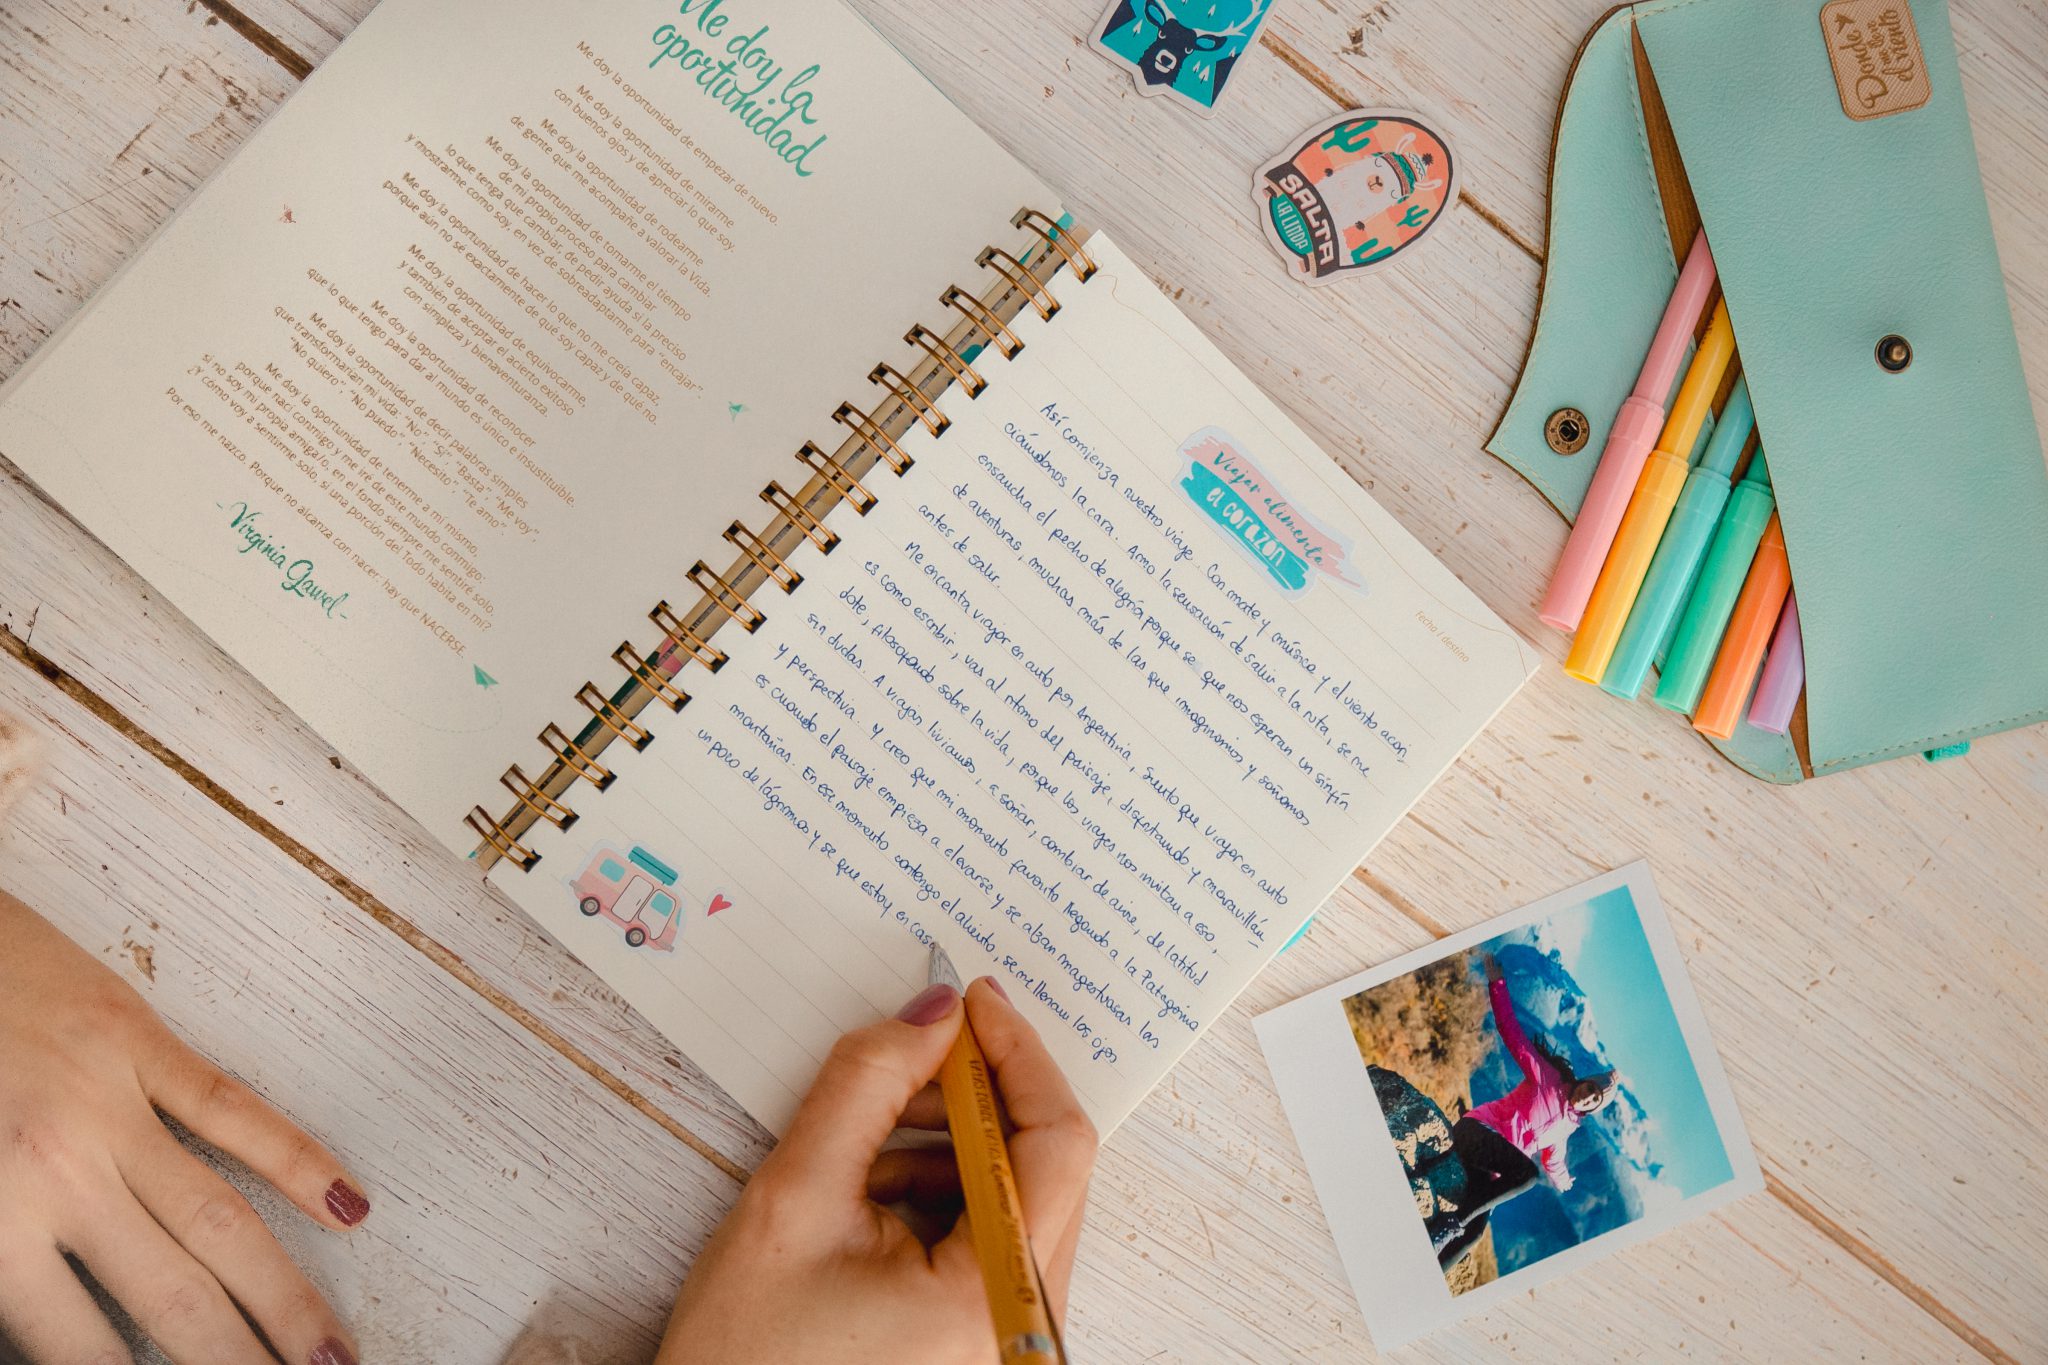 Me doy la
oportunidad
Me doy la oportunidad de empezar de nuevo.
Me doy la oportunidad de mirarme
con buenos ojos y de apreciar lo que soy.
Me doy la oportunidad de rodearme
de gente que me acompañe a valorar la Vida.
Me doy la oportunidad de tomarme el tiempo
de mi propio proceso para cambiar
lo que tenga que cambiar, de pedir ayuda si la preciso
y mostrarme como soy, en vez de sobreadaptarme para “encajar”.
Me doy la oportunidad de hacer lo que no me creía capaz,
porque aún no sé exactamente de qué soy capaz y de qué no.
Me doy la oportunidad de equivocarme,
y también de aceptar el acierto exitoso
con simpleza y bienaventuranza.
Me doy la oportunidad de reconocer
que lo que tengo para dar al mundo es único e insustituible.
Me doy la oportunidad de decir palabras simples
que transformarían mi vida: “No”, “Sí”, “Basta”, “Me voy”,
“No quiero”, “No puedo”, “Necesito”, “Te amo”.
Me doy la oportunidad de tenerme a mí mismo,
porque nací conmigo y me iré de este mundo conmigo:
si no soy mi propia amiga/o, en el fondo siempre me sentiré solo.
¿Y cómo voy a sentirme solo, si una porción del Todo habita en mí?
Por eso me nazco. Porque no alcanza con nacer: hay que NACERSE.
-Virginia Gawel-
Viajar alimenta
el corazón
Fecha / destino
Así comienza nuestro viaje. Con mate y música y el viento acari
ciándonos la cara. Amo la sensación de salir a la ruta, se me
ensancha el pecho de alegría porque se que nos esperan un sinfín
de aventuras, muchas más de las que imaginamos y soñamos
antes de salir.
Me encanta viajar en auto por Argentina, siento que viajar en auto
es como escribir, vas al ritmo del paisaje, disfrutando y maravillán
dote, filosofando sobre la vida, porque los viajes nos invitan a eso,
sin dudas. A viajar livianos, a soñar, cambiar de aire, de latitud
y perspectiva. Y creo que mi momento favorito llegando a la Patagonia
es cuando el paisaje empieza a elevarse y se alzan magestuosas las
montañas. En ese momento contengo el aliento, se me llenan los ojos
un poco de lágrimas y se que estoy en casa
SALTA
LA LINDA
Donde
me lleve
el viento